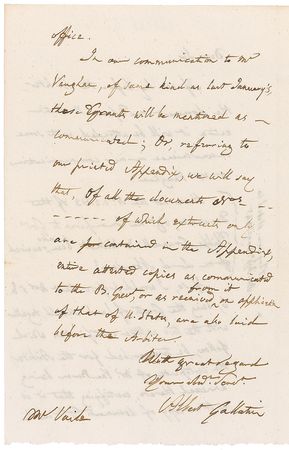 office.
In our communication to Mr
Vaughan, of same kind as last January's,
these will be mentioned as
communicated; Or, referring to
our printed Appendix, we will say
that Of all the documents
of which extracts only
are contained in the Appendix,
entire attested copies as communicated
to the B. Govt, or as received from it on application
of that of U. States, are also laid
before the Arbiter
With great regard
Your obdt. Servt.
Albert Gallatin
Mr